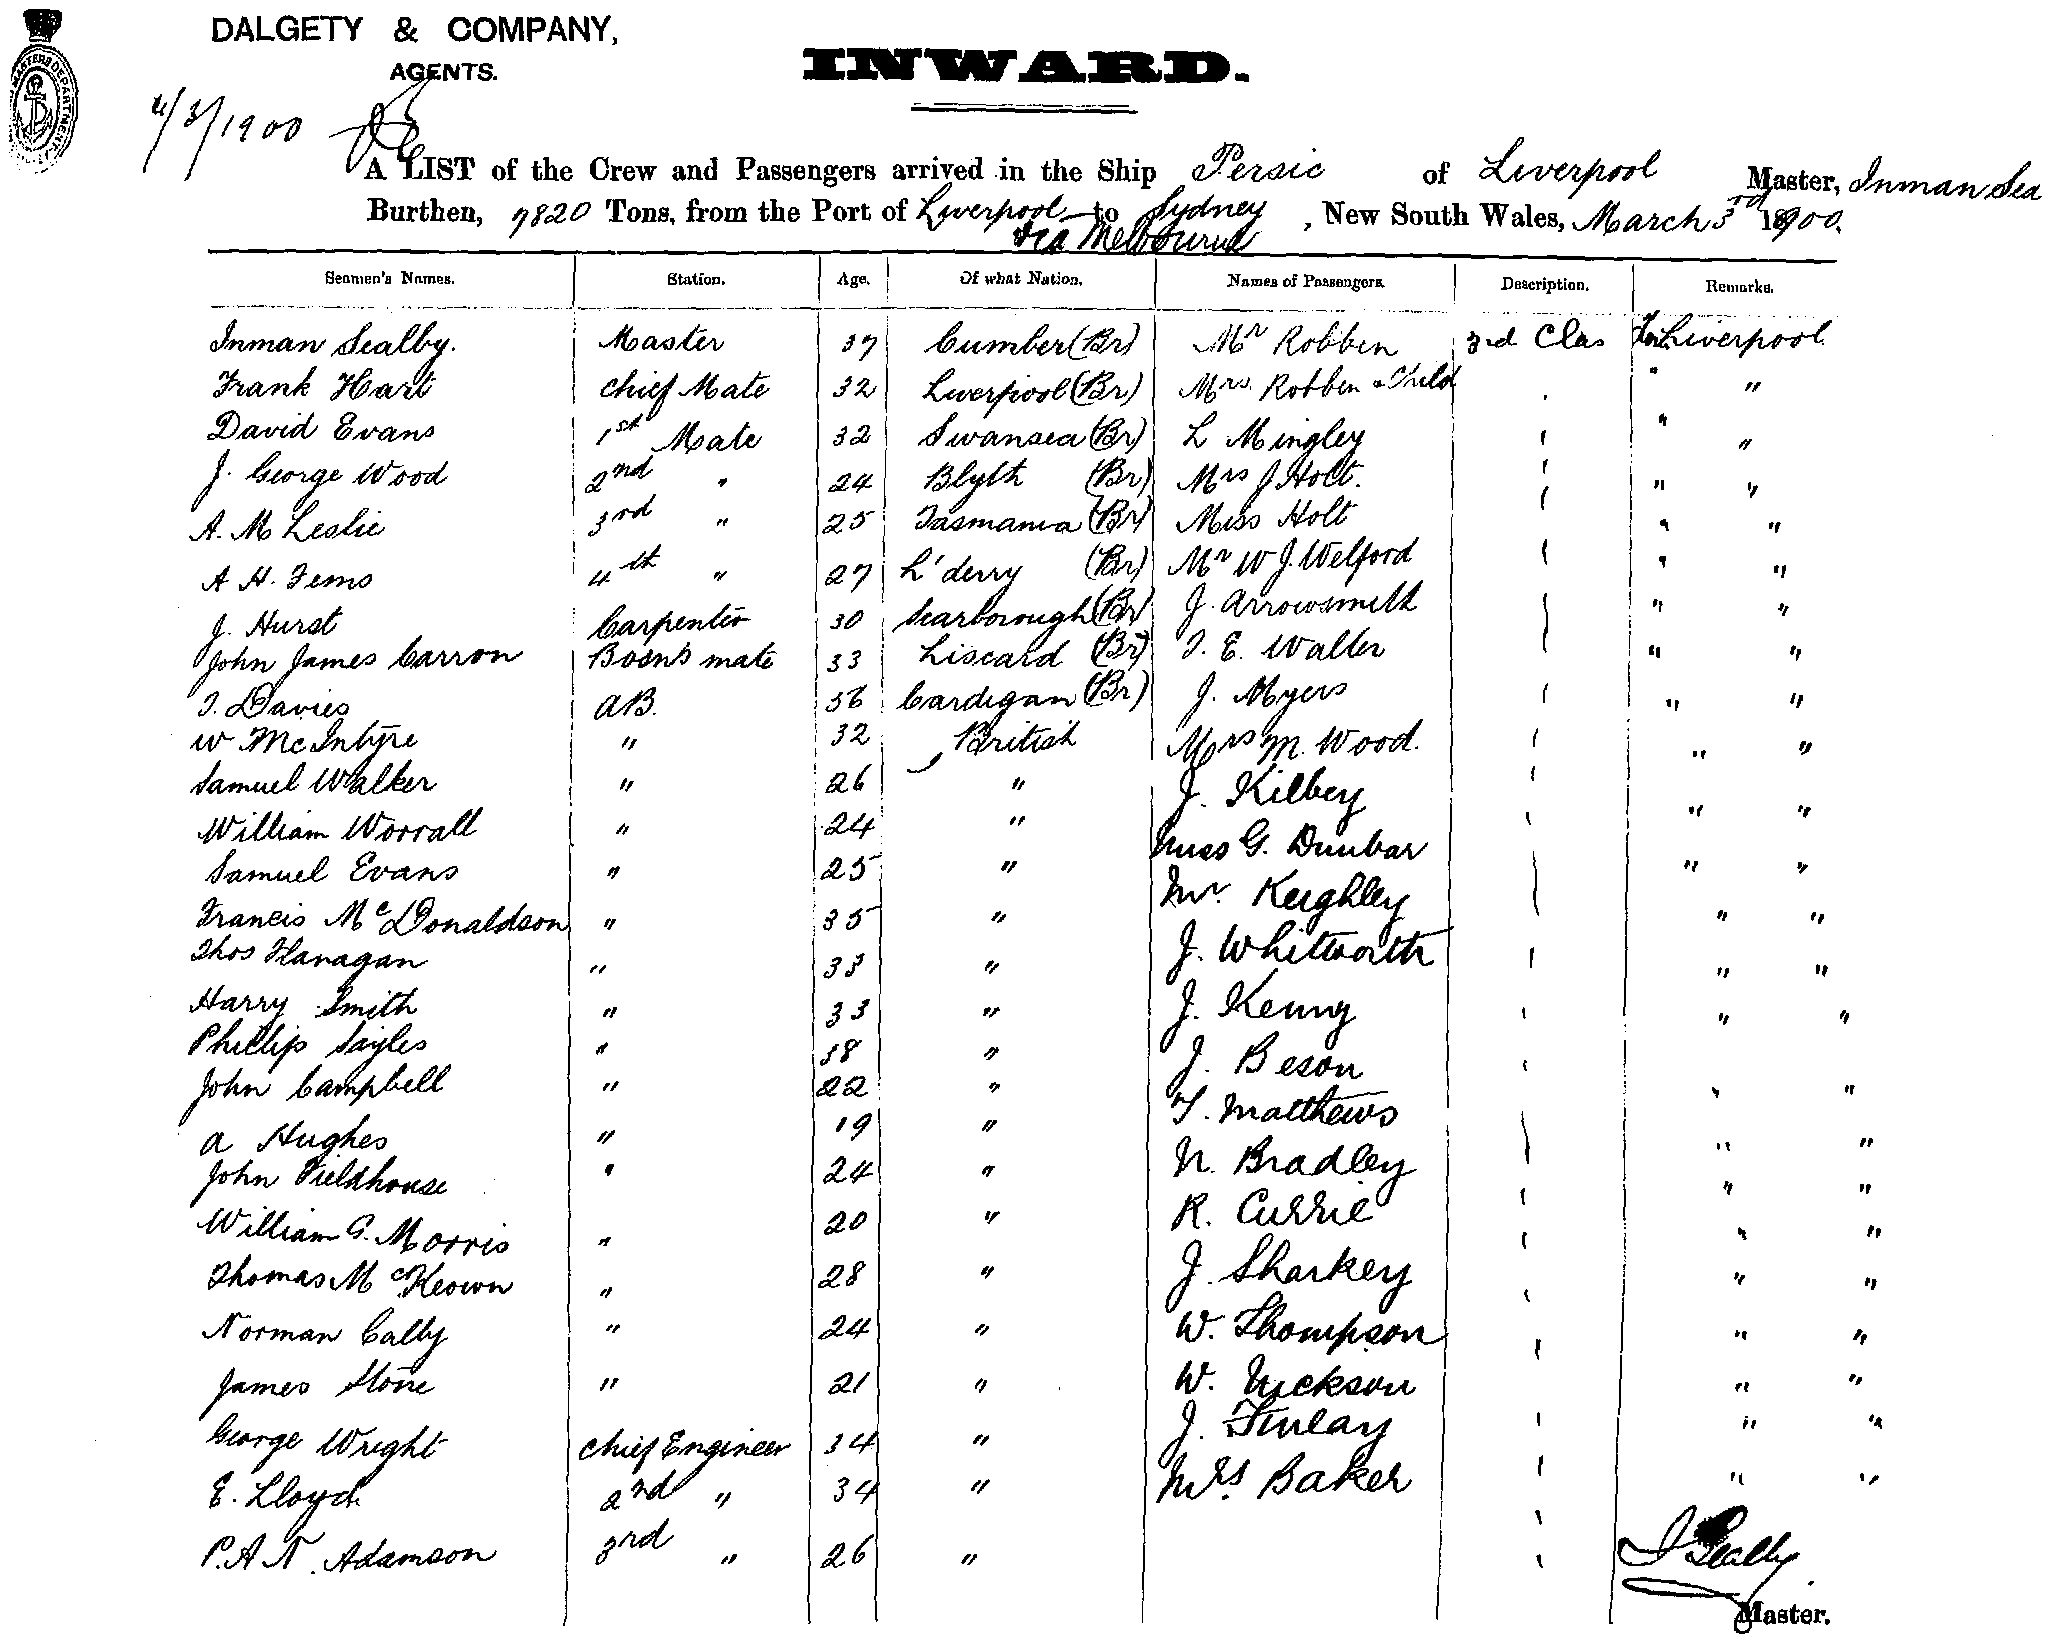 DALGETY & COMPANY,
AGENTS.
INWARD.
MASTERS DEPARTMENT
4/3/1900
A LIST of the Crew and Passengers arrived in the Ship Persic of Liverpool Master, Inman Sea
Burthen, 7820 Tons, from the Port of Liverpool to Sydney, New South Wales, March 3rd 1900.
via Melbourne
Seamen's Names. Station. Age. Of what Nation. Names of Passengers. Description. Remarks.
Inman Sealby. Master 37 Cumber (Br) Mr Robben 3rd Clas For Liverpool
Frank Hart Chief Mate 32 Liverpool (Br) Mrs. Robben & Child " "
David Evans 1st Mate 32 Swansea (Br) L Mingley " "
J. George Wood 2nd " 24 Blyth (Br) Mrs J Holt. " "
A. M Leslie 3rd " 25 Tasmania (Br) Miss Holt " "
A H. Fems 4th " 27 L'derry (Br) Mr W J. Welford " "
J. Hurst Carpenter 30 Scarborough (Br) J. Arrowsmith " "
John James Carron Bosn's mate 33 Liscard (Br) T. E. Walter " "
T. Davies AB. 56 Cardigan (Br) J. Myers " "
W McIntyre " 32 British Mrs M. Wood. " "
Samuel Walker " 26 " J. Kilbey
William Worrall " 24 " Miss G. Dunbar " "
Samuel Evans " 25 " Mr. Keighley " "
Francis McDonaldson " 35 " J. Whitworth " "
Thos Flanagan " 33 " J. Kenny " "
Harry Smith " 33 " J. Beson " "
Phillip Sayles " 38 " T. Matthews
John Campbell " 22 " N. Bradley " "
A Hughes " 19 " R. Currie " "
John Fieldhouse " 24 " J. Sharkey " "
William G. Morris " 20 " W. Thompson " "
Thomas McKeown " 28 " W. Nickson " "
Norman Cally " 24 " J. Finlay " "
James Stone " 21 " Mrs. Baker " "
George Wright Chief Engineer 34 " " "
E. Lloyd 2nd " 34 " " "
P. A N. Adamson 3rd " 26 "
I Sealby
Master.